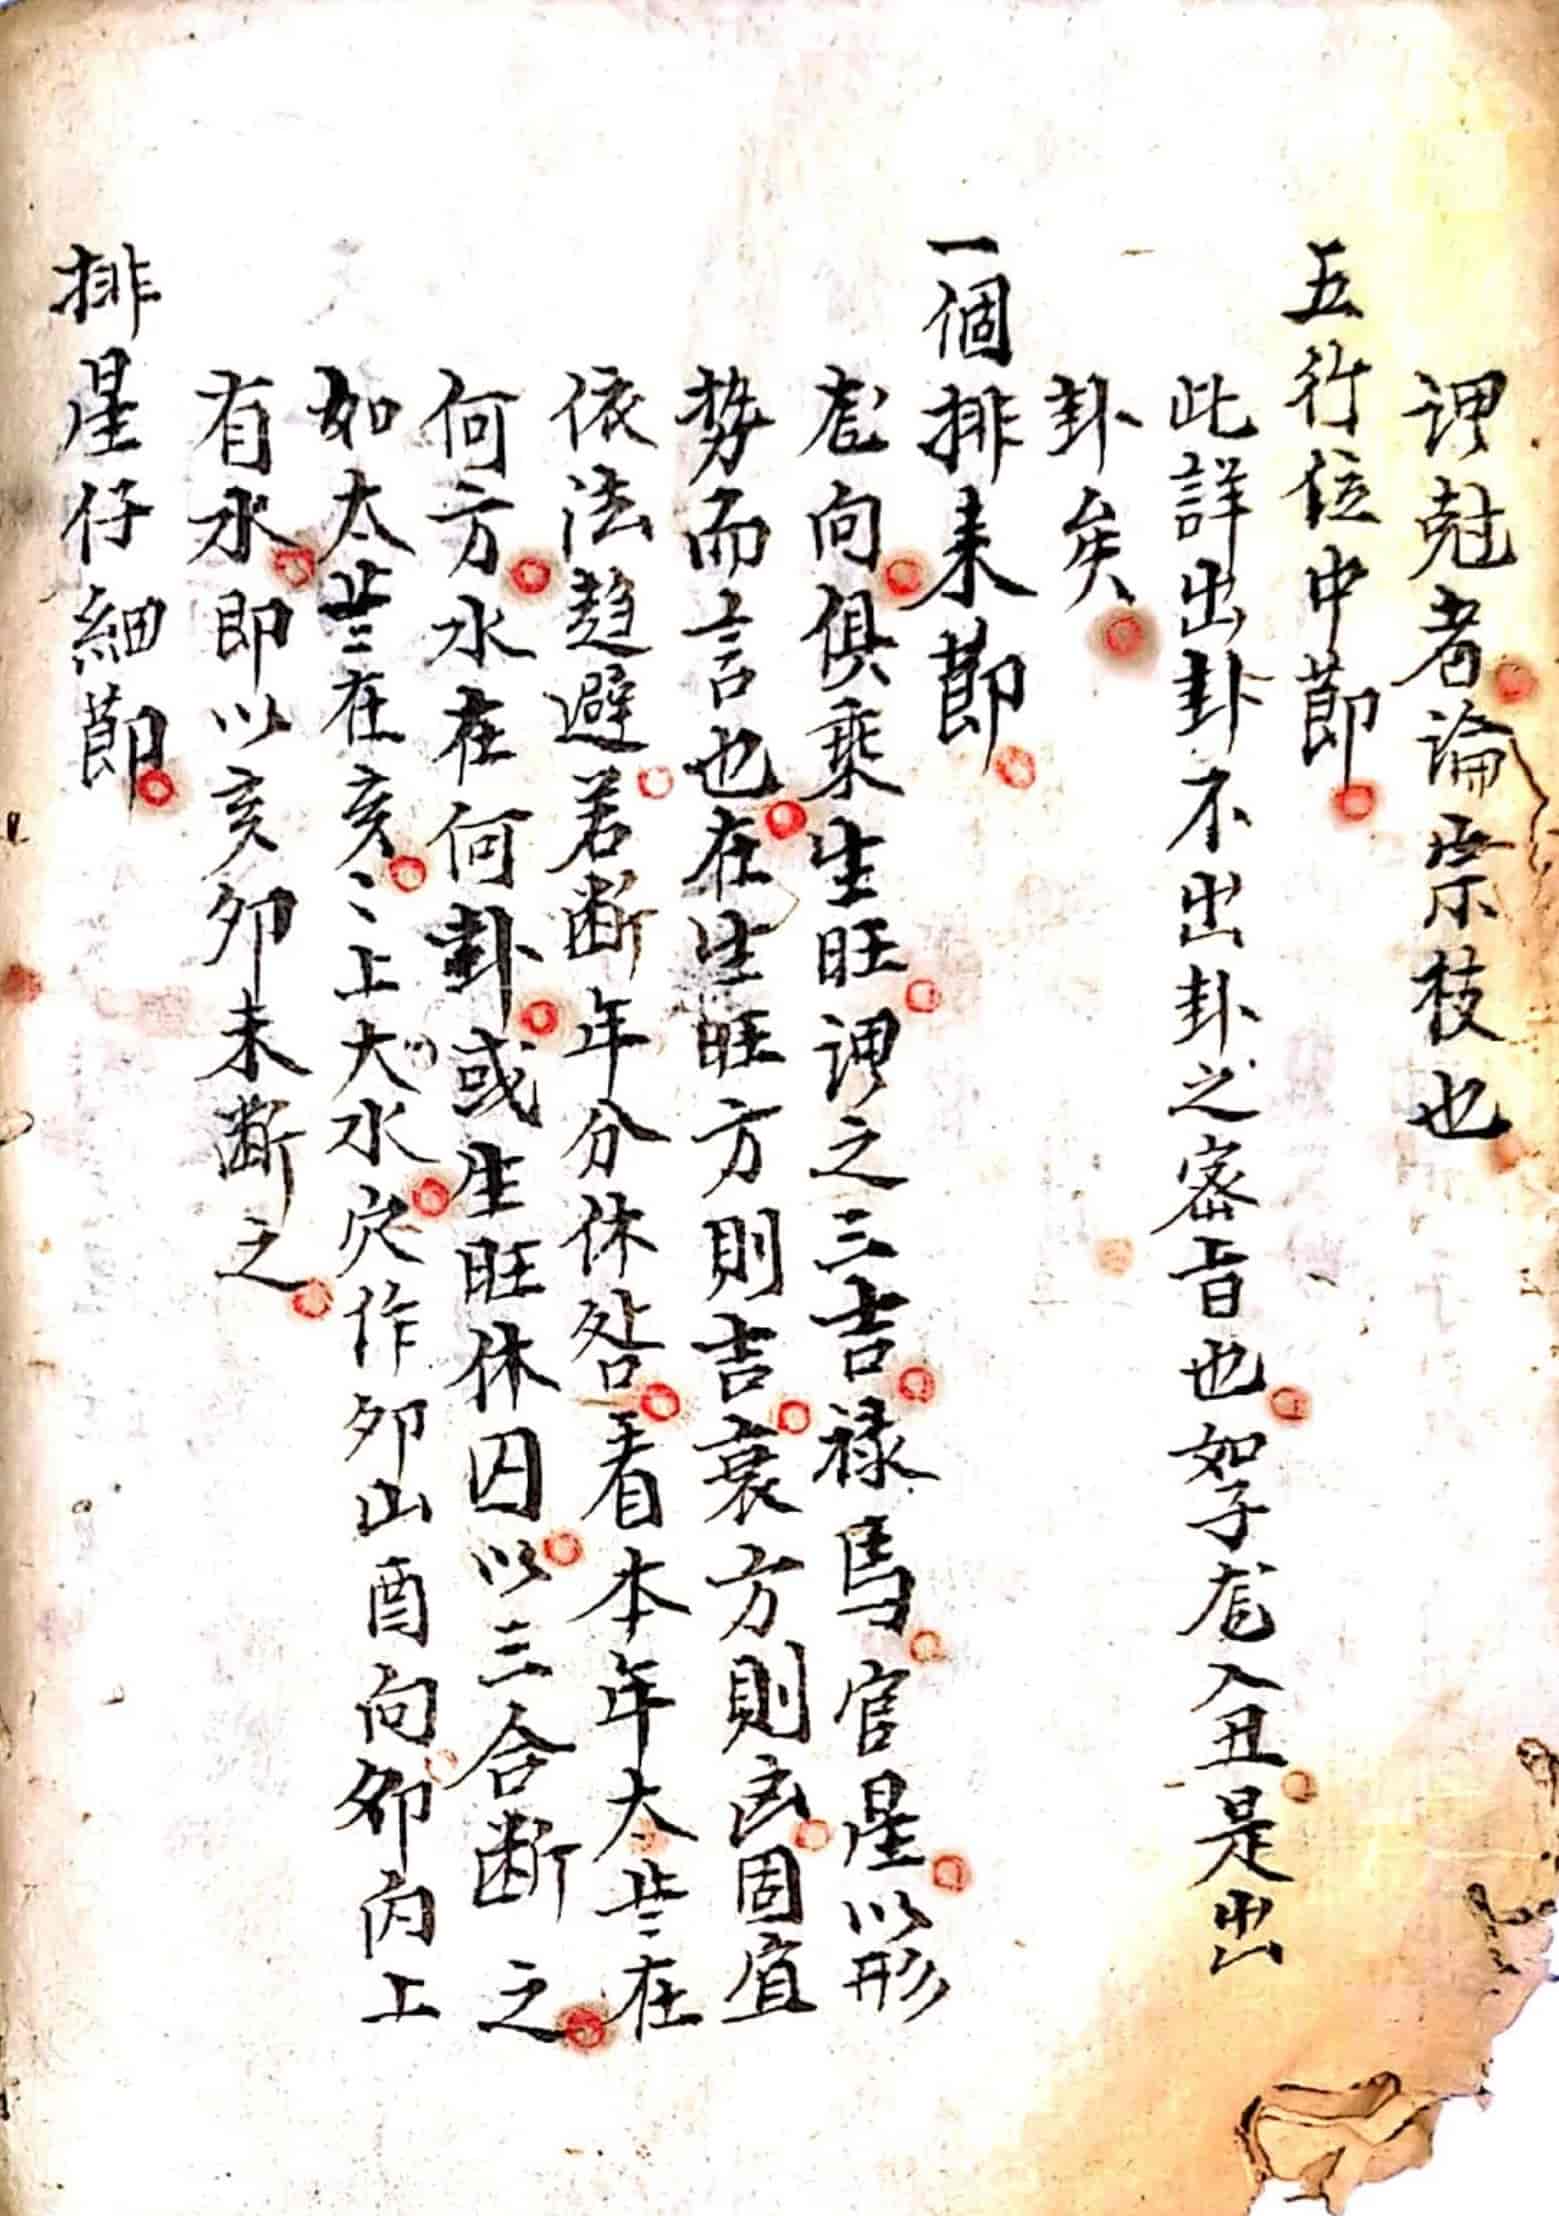 謂尅者論宗枝也
五行位中節
此詳出卦不出卦之密旨也如子龙入丑是出
卦矣
一個排来節
龙向俱乘生旺謂之三吉禄馬官星以形
势而言也在生旺方則吉衰方則凶固宜
依法趋避若断年分休咎看本年太岁在
何方水在何卦或生旺休囚以三合断之
如太岁在亥〻上大水穴作卯山酉向卯丙上
有水即以亥卯未断之
排星仔細節